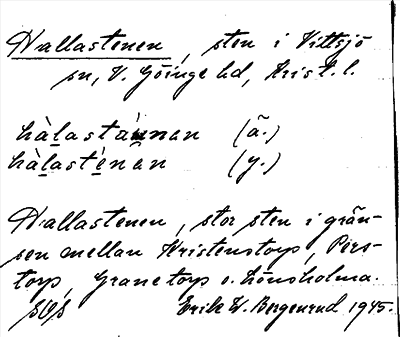 Hallastenen, sten i Vittsjö
sn, V. Göinge hd, Krist. l.
hàlastáunan (ä.)
hàlasténən (y.)
Hallastenen, stor sten i grän-
sen mellan Kristenstorp, Pers-
torp, Granetorp o. Lönsholma.
Erik W. Bergenrud 1945.